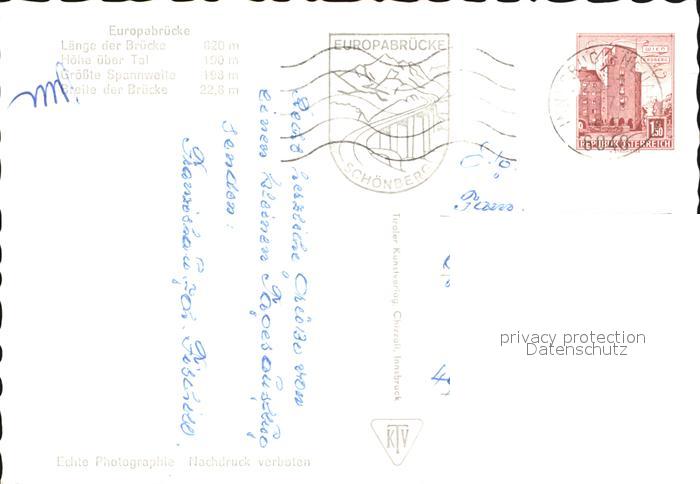 Europabrücke
Länge der Brücke 820 m
Höhe über Tal 190 m
Größte Spannweite 198 m
Breite der Brücke 22,8 m
EUROPABRÜCKE
SCHÖNBERG
WIEN
1.50
REPUBLIK ÖSTERREICH
6040
Fam.
Recht herzliche Grüße von
einem kleinen Tagesausflug
senden:
Tiroler Kunstverlag, Chizzali, Innsbruck
privacy protection
Datenschutz
KTV
Echte Photographie Nachdruck verboten